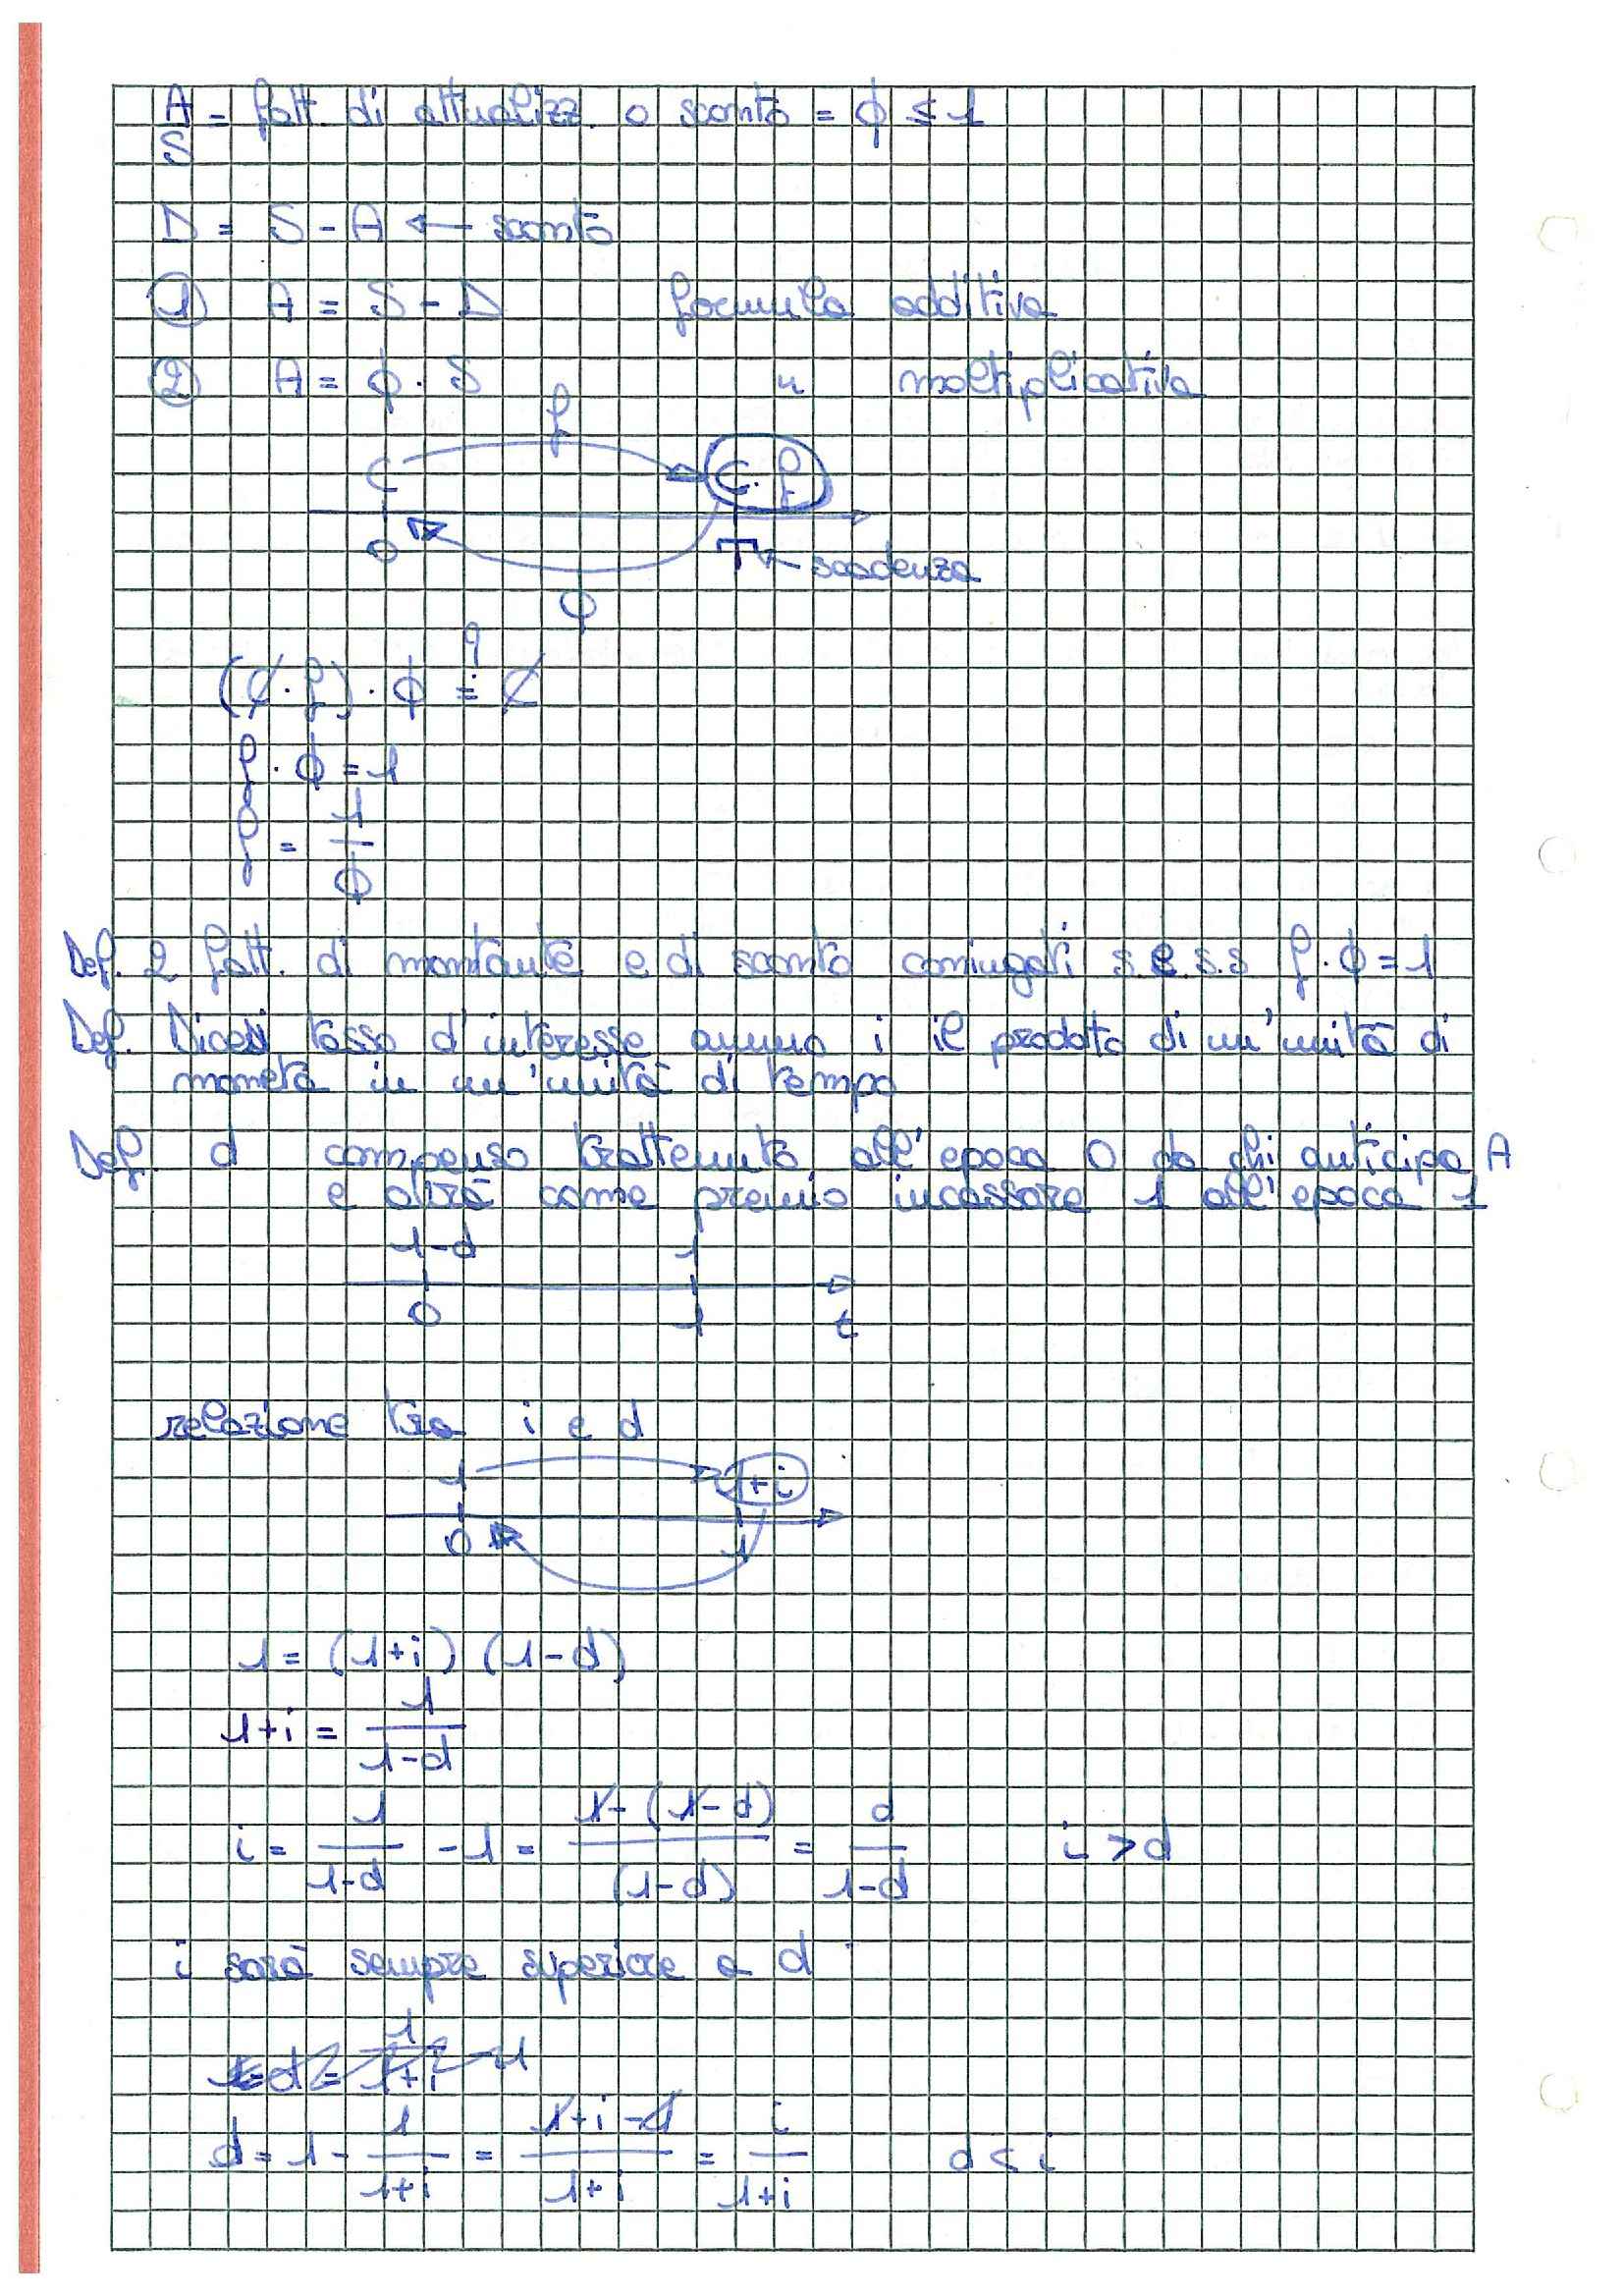 A/S = fatt. di attualizz. o sconto = ϕ ≤ 1
D = S - A ← sconto
① A = S - D formula additiva
② A = ϕ · S " moltiplicativa
f
C C · f
0 T ← scadenza
ϕ
(C · f) · ϕ =? C
f · ϕ = 1
f = 1/ϕ
Def. 2 fatt. di montante e di sconto coniugati s.e.s.s f · ϕ = 1
Def. Dicesi tasso d'interesse annuo i il prodotto di un'unità di
moneta in un'unità di tempo
Def. d compenso trattenuto all'epoca 0 da chi anticipa A
e otterrà come premio incassare 1 all'epoca 1
1-d 1
0 1 t
relazione tra i e d
1 1+i
0 1
1 = (1+i) (1-d)
1+i = 1/(1-d)
i = 1/(1-d) - 1 = (1-(1-d))/(1-d) = d/(1-d) i > d
i sarà sempre superiore a d
d = 1 - 1/(1+i) = (1+i-1)/(1+i) = i/(1+i) d < i